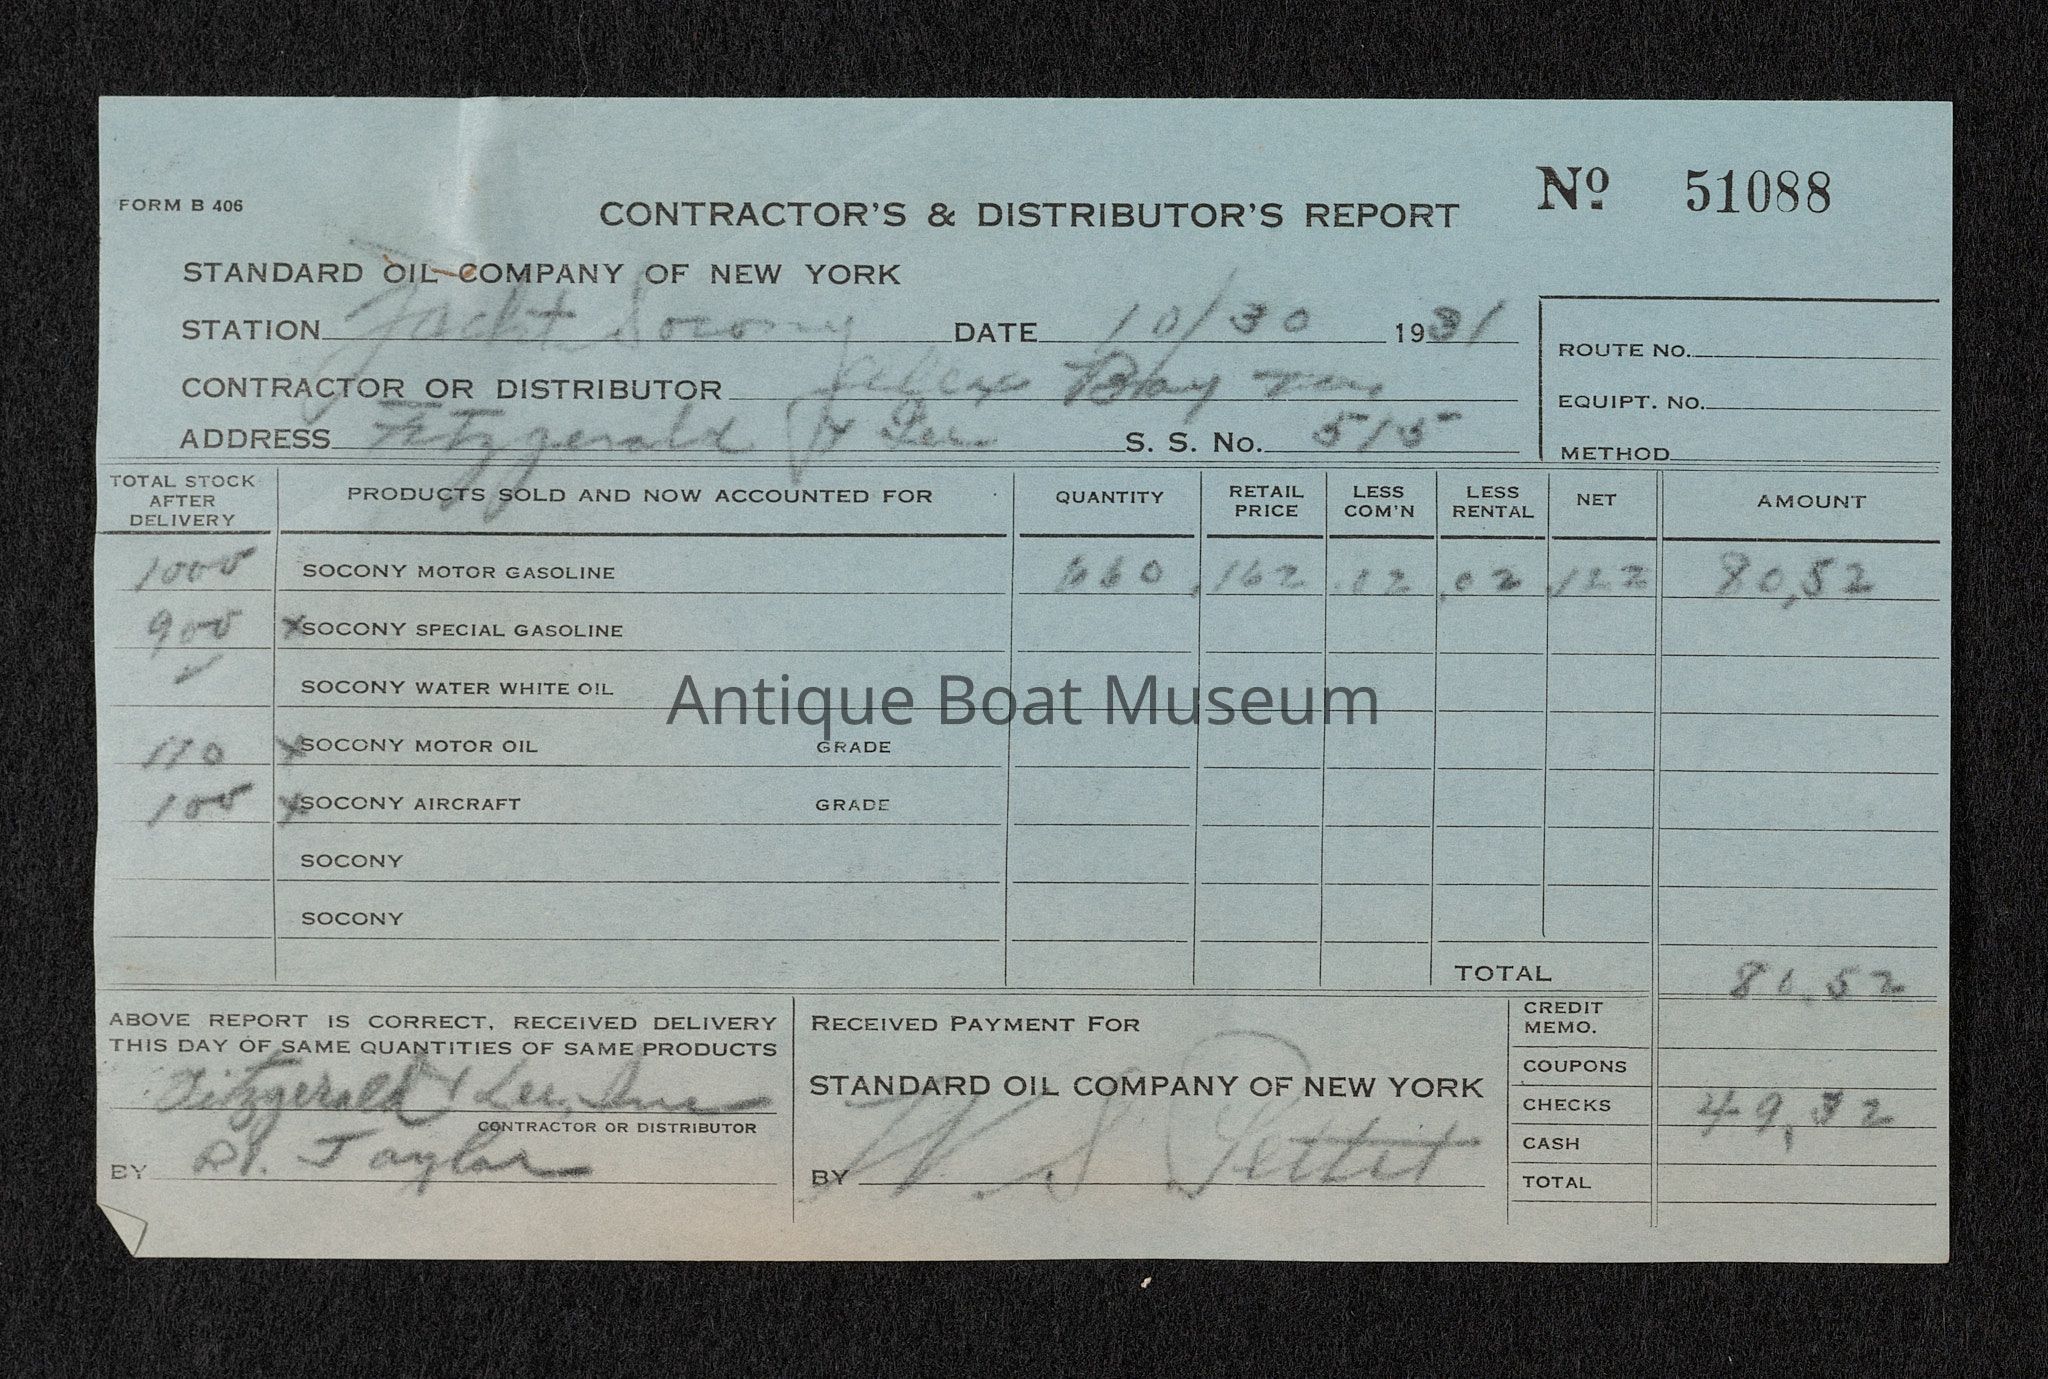 FORM B 406
CONTRACTOR'S & DISTRIBUTOR'S REPORT
Nº 51088
STANDARD OIL COMPANY OF NEW YORK
STATION Yacht Socony DATE 10/30 1931
ROUTE NO.
CONTRACTOR OR DISTRIBUTOR Alex Bay
EQUIPT. NO.
ADDRESS Fitzgerald & Lee S. S. No. 515
METHOD
TOTAL STOCK AFTER DELIVERY PRODUCTS SOLD AND NOW ACCOUNTED FOR QUANTITY RETAIL PRICE LESS COM'N LESS RENTAL NET AMOUNT
1000 SOCONY MOTOR GASOLINE 660 .162 .02 .02 .122 80,52
900 x SOCONY SPECIAL GASOLINE
✓ SOCONY WATER WHITE OIL
Antique Boat Museum
170 x SOCONY MOTOR OIL GRADE
100 x SOCONY AIRCRAFT GRADE
SOCONY
SOCONY
TOTAL 80.52
ABOVE REPORT IS CORRECT, RECEIVED DELIVERY
THIS DAY OF SAME QUANTITIES OF SAME PRODUCTS
Fitzgerald & Lee, Inc
CONTRACTOR OR DISTRIBUTOR
BY Taylor
RECEIVED PAYMENT FOR
STANDARD OIL COMPANY OF NEW YORK
BY W S Pettit
CREDIT MEMO.
COUPONS
CHECKS 49,32
CASH
TOTAL